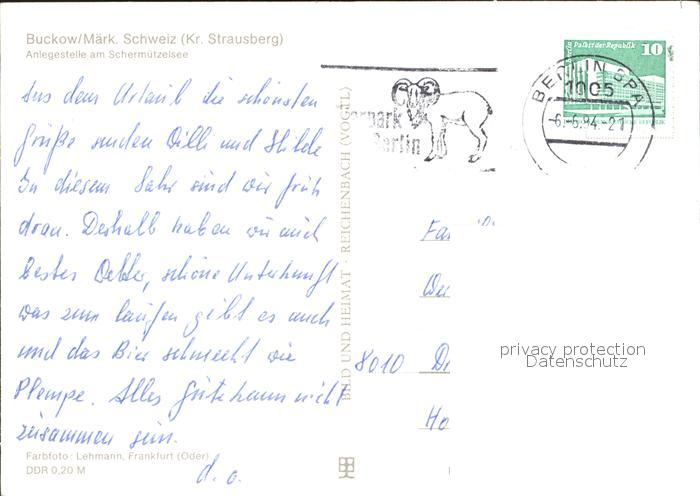 Buckow/Märk. Schweiz (Kr. Strausberg)
Anlegestelle am Schermützelsee
Aus dem Urlaub die schönsten
Grüße senden Willi und Hilde
In diesem Jahr sind wir früh
dran. Deshalb haben wir auch
bestes Wetter, schöne Unterkunft
was zum laufen gibt es auch
und das Bier schmeckt wie
Plempe. Alles Gute kann nicht
zusammen sein.
d. o.
Farbfoto: Lehmann, Frankfurt (Oder)
DDR 0,20 M
BILD UND HEIMAT · REICHENBACH (VOGTL)
erpark
Berlin
BERLIN BPA
1005
-6.-6.84.-21
Berlin Palast der Republik 10
Fa
We
8010 D
Ho
privacy protection
Datenschutz